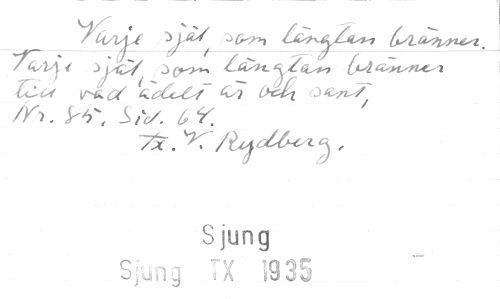 Varje själ, som längtan bränner.
Varje själ, som längtan bränner
till vad ädelt är och sant,
Nr. 85. Sid. 64.
Tx. V. Rydberg.
Sjung
Sjung TX 1935